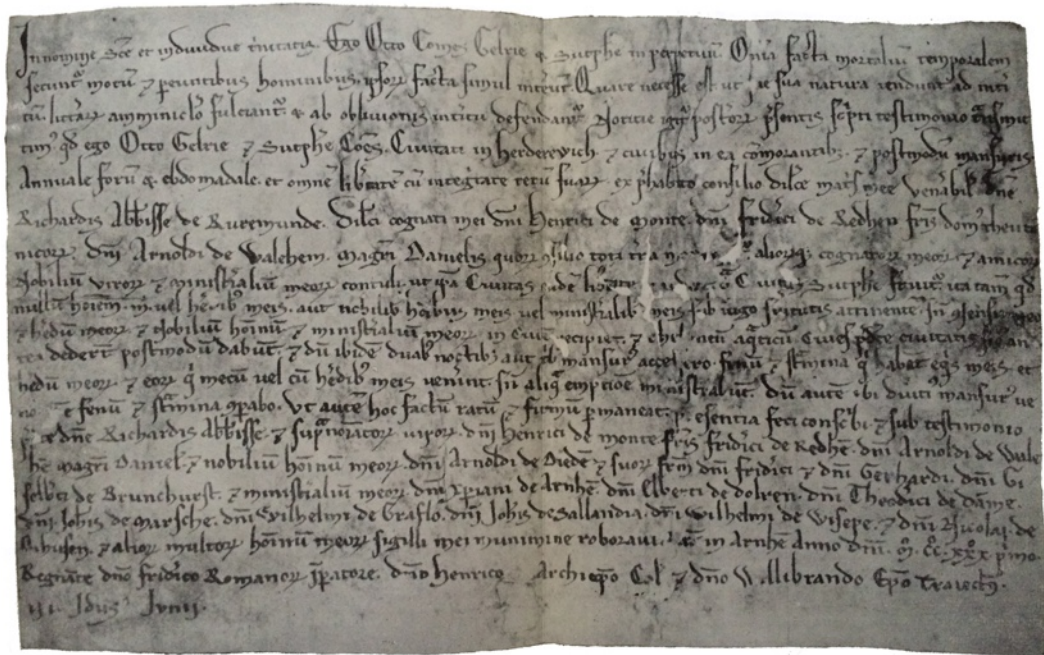 In nomine Sce et individue trinitatis. Ego Otto Comes Gelrie & Sutphe in perpetuu. Omia facta mortaliu temporalem
secunt motu & pereuntibus hominibus ipsorr facta simul Quare necesse est ut que sua natura tendunt ad interi
tu. litterar amminiclo fulciant & ab oblivionis interitu defendant Noticie posterorr psentis scpti testimonio tasmit
tim qd ego Otto Gelrie & Sutphe Coes. Civitati in herderewich & civibus in ea comorantib. & postmodu mansuris.
Annuale foru & ebdomadale. et omne libtate cu integtate reru suar. ex phabito consilio dilce mats mee venabil dne
Richardis Abbisse de Ruremunde. Dilci cognati mei dni Henrici de Monte. dni fridici de Redhen fris dom theuto
nicorr. dni Arnoldi de Walehem. magri Danielis quorr csilio tota tra aliorq cognatorr meorr & amicorr
Nobiliu virorr & ministraliu meorr contuli. ut qa Civitas eade libtate Civitas Sutphe fruit. ita tam qd
nullu hoiem m vel hedib meis. aut nobilib hoibus meis vel ministralib meis sb iugo servitutis attinente.
& hedu meorr & Nobiliu hoinu & ministraliu meorr in cive recipiet. Cives pdce civitatis
dedert postmodu dabut. & du ibide duab noctib aut mansur accessero. fenu & stamina q habet eqs meis. et
hedu meorr & eorr q mecu vel cu hedib meis venerint. sn aliq emptioe ministrabut. Du aute ibi diuti mansur ve
fenu & stamina cparabo. Ut aute hoc factu ratu & firmu pmaneat. feci conscbi & sub testimonio
dne Richardis Abbisse. & supa noiatorr virorr. dni Henrici de monte fris fridici de Redhe. dni Arnoldi de Wale
he. magri Daniel. & nobiliu hoinu meorr. dni Arnoldi de Diede & suorr frm dni fridici & dni Gerhardi. dni Gi
selbti de Brunchurst. & ministialiu meorr. dni de Arnhe. dni Elberti de dolren. dni Theodici de
dni Johis de Marsche. dni Wilhelmi de Graflo. dni Johis de Sallandia. dni Wilhelmi de Wisepe. & dni Nicolai de
& aliorr multorr hoinu meorr sigilli mei munimine roboravi. in Arnhe Anno dni. M. CC. XXX pmo.
Regnate dno fridico Romanorr ipatore. dno Henrico Archiepo Col & dno Willibrando Epo Traiecte.
III. Idus Junii.